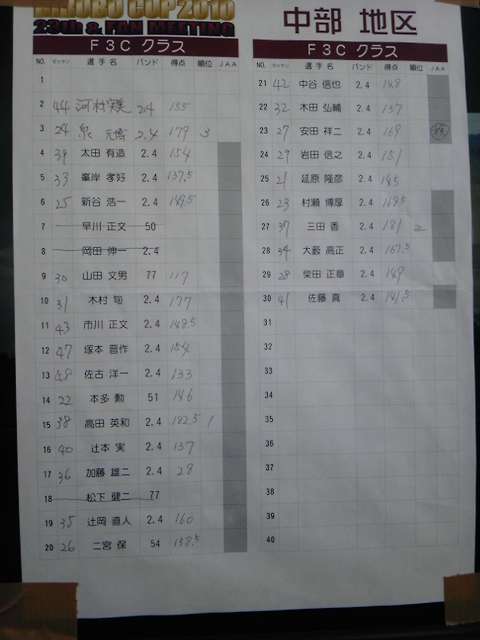 CUP 2010
23th & FAN MEETING
F3C クラス
NO. ゼッケン 選手名 バンド 得点 順位 JAA
1
2 44 河村 2.4 155
3 24 泉 2.4 179 3
4 39 太田 有造 2.4 154
5 33 峯岸 孝好 2.4 137.5
6 25 新谷 浩一 2.4 149.5
7 早川 正文 50
8 岡田 伸一 2.4
9 30 山田 文男 77 117
10 31 木村 2.4 177
11 43 市川 正文 2.4 148.5
12 47 塚本 晋作 2.4 154
13 48 佐古 洋一 2.4 133
14 22 本多 勲 51 146
15 38 高田 英和 2.4 182.5 1
16 40 辻本 実 2.4 137
17 36 加藤 雄二 2.4 28
18 松下 健二 77
19 35 辻岡 直人 2.4 160
20 26 二宮 保 54 138.5
中部 地区
F3C クラス
NO. ゼッケン 選手名 バンド 得点 順位 JAA
21 42 中谷 信也 2.4 148
22 32 木田 弘輔 2.4 137
23 27 安田 祥二 2.4 169
24 29 岩田 信之 2.4 151
25 21 延原 隆彦 2.4 145
26 23 村瀬 博厚 2.4 169.5
27 37 三田 香 2.4 181 2
28 34 大藪 高正 2.4 167.5
29 28 柴田 正章 2.4 149
30 41 佐藤 真 2.4 141.5
31
32
33
34
35
36
37
38
39
40